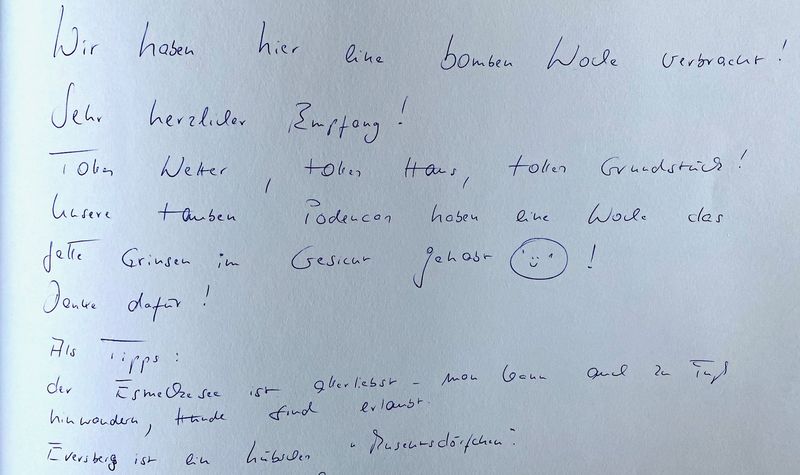 Wir haben hier eine bomben Woche verbracht!
Sehr herzlicher Empfang!
Tolles Wetter, tolles Haus, tolles Grundstück!
Unsere tauben Podencos haben eine Woche das
fette Grinsen im Gesicht gehabt !
Danke dafür!
Als Tipps:
der Esmeckesee ist allerliebst - man kann auch zu Fuß
hinwandern, Hunde sind erlaubt.
Eversberg ist ein hübsches "Museumsdörfchen".